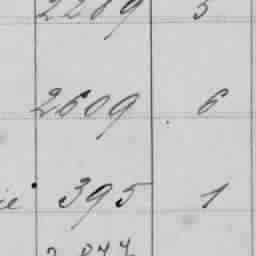 2209 5
2609 6
ie 395 1